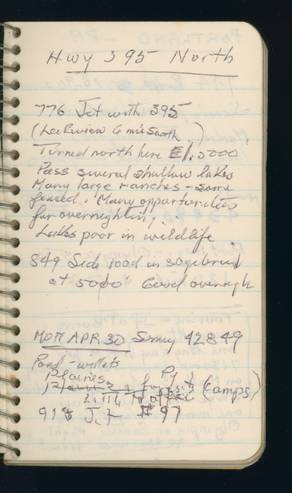 Hwy 395 North
776 Jct with 395
(Lakeview 6 mi South)
Turned north here El. 5000
Pass several shallow lakes
Many large ranches - some
fenced. Many opportunities
for overnighting.
Lakes poor in wildlife
849 Side road in sagebrush
at 5000' Good overnight
MON APR 30 Sunny 42849
Pond - willets
Plaines
918 Jct # 97